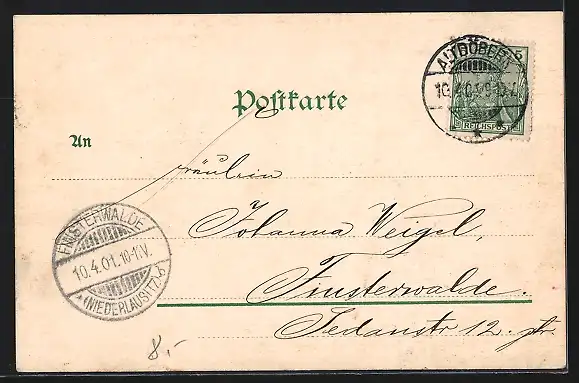 ALTDÖBERN
10.4.01.
REICHSPOST
Postkarte
An
Fräulein
Johanna Weigel,
FINSTERWALDE
10.4.01.10-11.V.
(NIEDERLAUSITZ)
Finsterwalde.
Sedanstr 12.
8,-